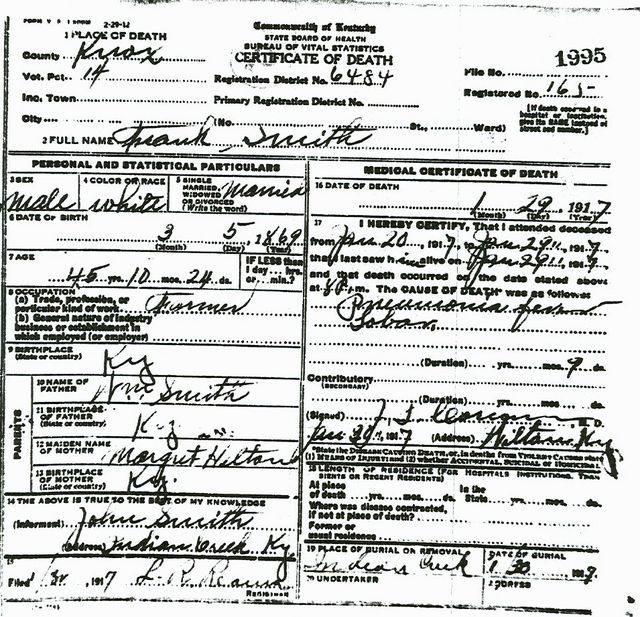 2-29-12
Commonwealth of Kentucky
STATE BOARD OF HEALTH
BUREAU OF VITAL STATISTICS
CERTIFICATE OF DEATH
1 PLACE OF DEATH
County Knox
Vot. Pct. 14
Registration District No. 6484
File No. 1995
Registered No. 165-
Inc. Town
Primary Registration District No.
City (No. St., Ward)
[If death occurred in a hospital or institution, give its NAME instead of street and number.]
2 FULL NAME Frank Smith
PERSONAL AND STATISTICAL PARTICULARS
3 SEX male
4 COLOR OR RACE white
5 SINGLE MARRIED, WIDOWED OR DIVORCED (Write the word) Married
6 DATE OF BIRTH
3 5, 1869
(Month) (Day) (Year)
7 AGE
45 yrs. 10 mos. 24 ds.
IF LESS than 1 day... hrs. or... min.?
8 OCCUPATION
(a) Trade, profession, or particular kind of work Farmer
(b) General nature of industry business or establishment in which employed (or employer)
9 BIRTHPLACE (State or country) Ky
PARENTS
10 NAME OF FATHER Wm Smith
11 BIRTHPLACE OF FATHER (State or country) Ky
12 MAIDEN NAME OF MOTHER Margret
13 BIRTHPLACE OF MOTHER (State or country) Ky.
14 THE ABOVE IS TRUE TO THE BEST OF MY KNOWLEDGE
(Informant) John Smith
(Address) Indian Creek Ky
15
Filed 1917
REGISTRAR
MEDICAL CERTIFICATE OF DEATH
16 DATE OF DEATH
1 29, 1917
(Month) (Day) (Year)
17 I HEREBY CERTIFY, That I attended deceased
from Jan 20, 1917, to Jan 29, 1917
that I last saw him alive on Jan 29, 1917
and that death occurred on the date stated above
at 8 P.m. The CAUSE OF DEATH* was as follows
Pneumonia
Lobar
(Duration) yrs. mos. 9 ds.
Contributory (SECONDARY)
(Duration) yrs. mos. ds.
(Signed) M. D.
Jan 30, 1917 (Address) Ky
*State the DISEASE CAUSING DEATH, or, in deaths from VIOLENT CAUSES state
(1) MEANS OF INJURY; and (2) whether ACCIDENTAL, SUICIDAL or HOMICIDAL
18 LENGTH OF RESIDENCE (FOR HOSPITALS INSTITUTIONS, TRANSIENTS OR RECENT RESIDENTS)
At place of death yrs. mos. ds. In the State yrs. mos. ds.
Where was disease contracted, if not at place of death?
Former or usual residence
19 PLACE OF BURIAL OR REMOVAL Indian Creek
DATE OF BURIAL 1 30, 1917
20 UNDERTAKER
ADDRESS